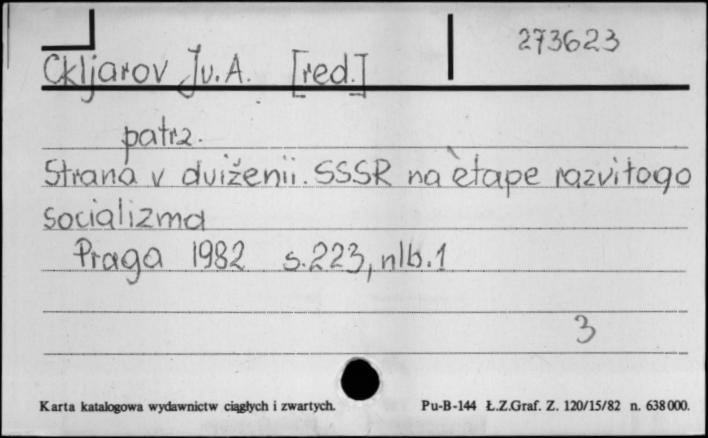 273623
Ckljarov Ju. A. [red.]
patrz.
Strana v dviženii. SSSR na ètape razvitogo
socializma
Praga 1982 s. 223, nlb. 1
3
Karta katalogowa wydawnictw ciągłych i zwartych. Pu-B-144 Ł.Z.Graf. Z. 120/15/82 n. 638000.